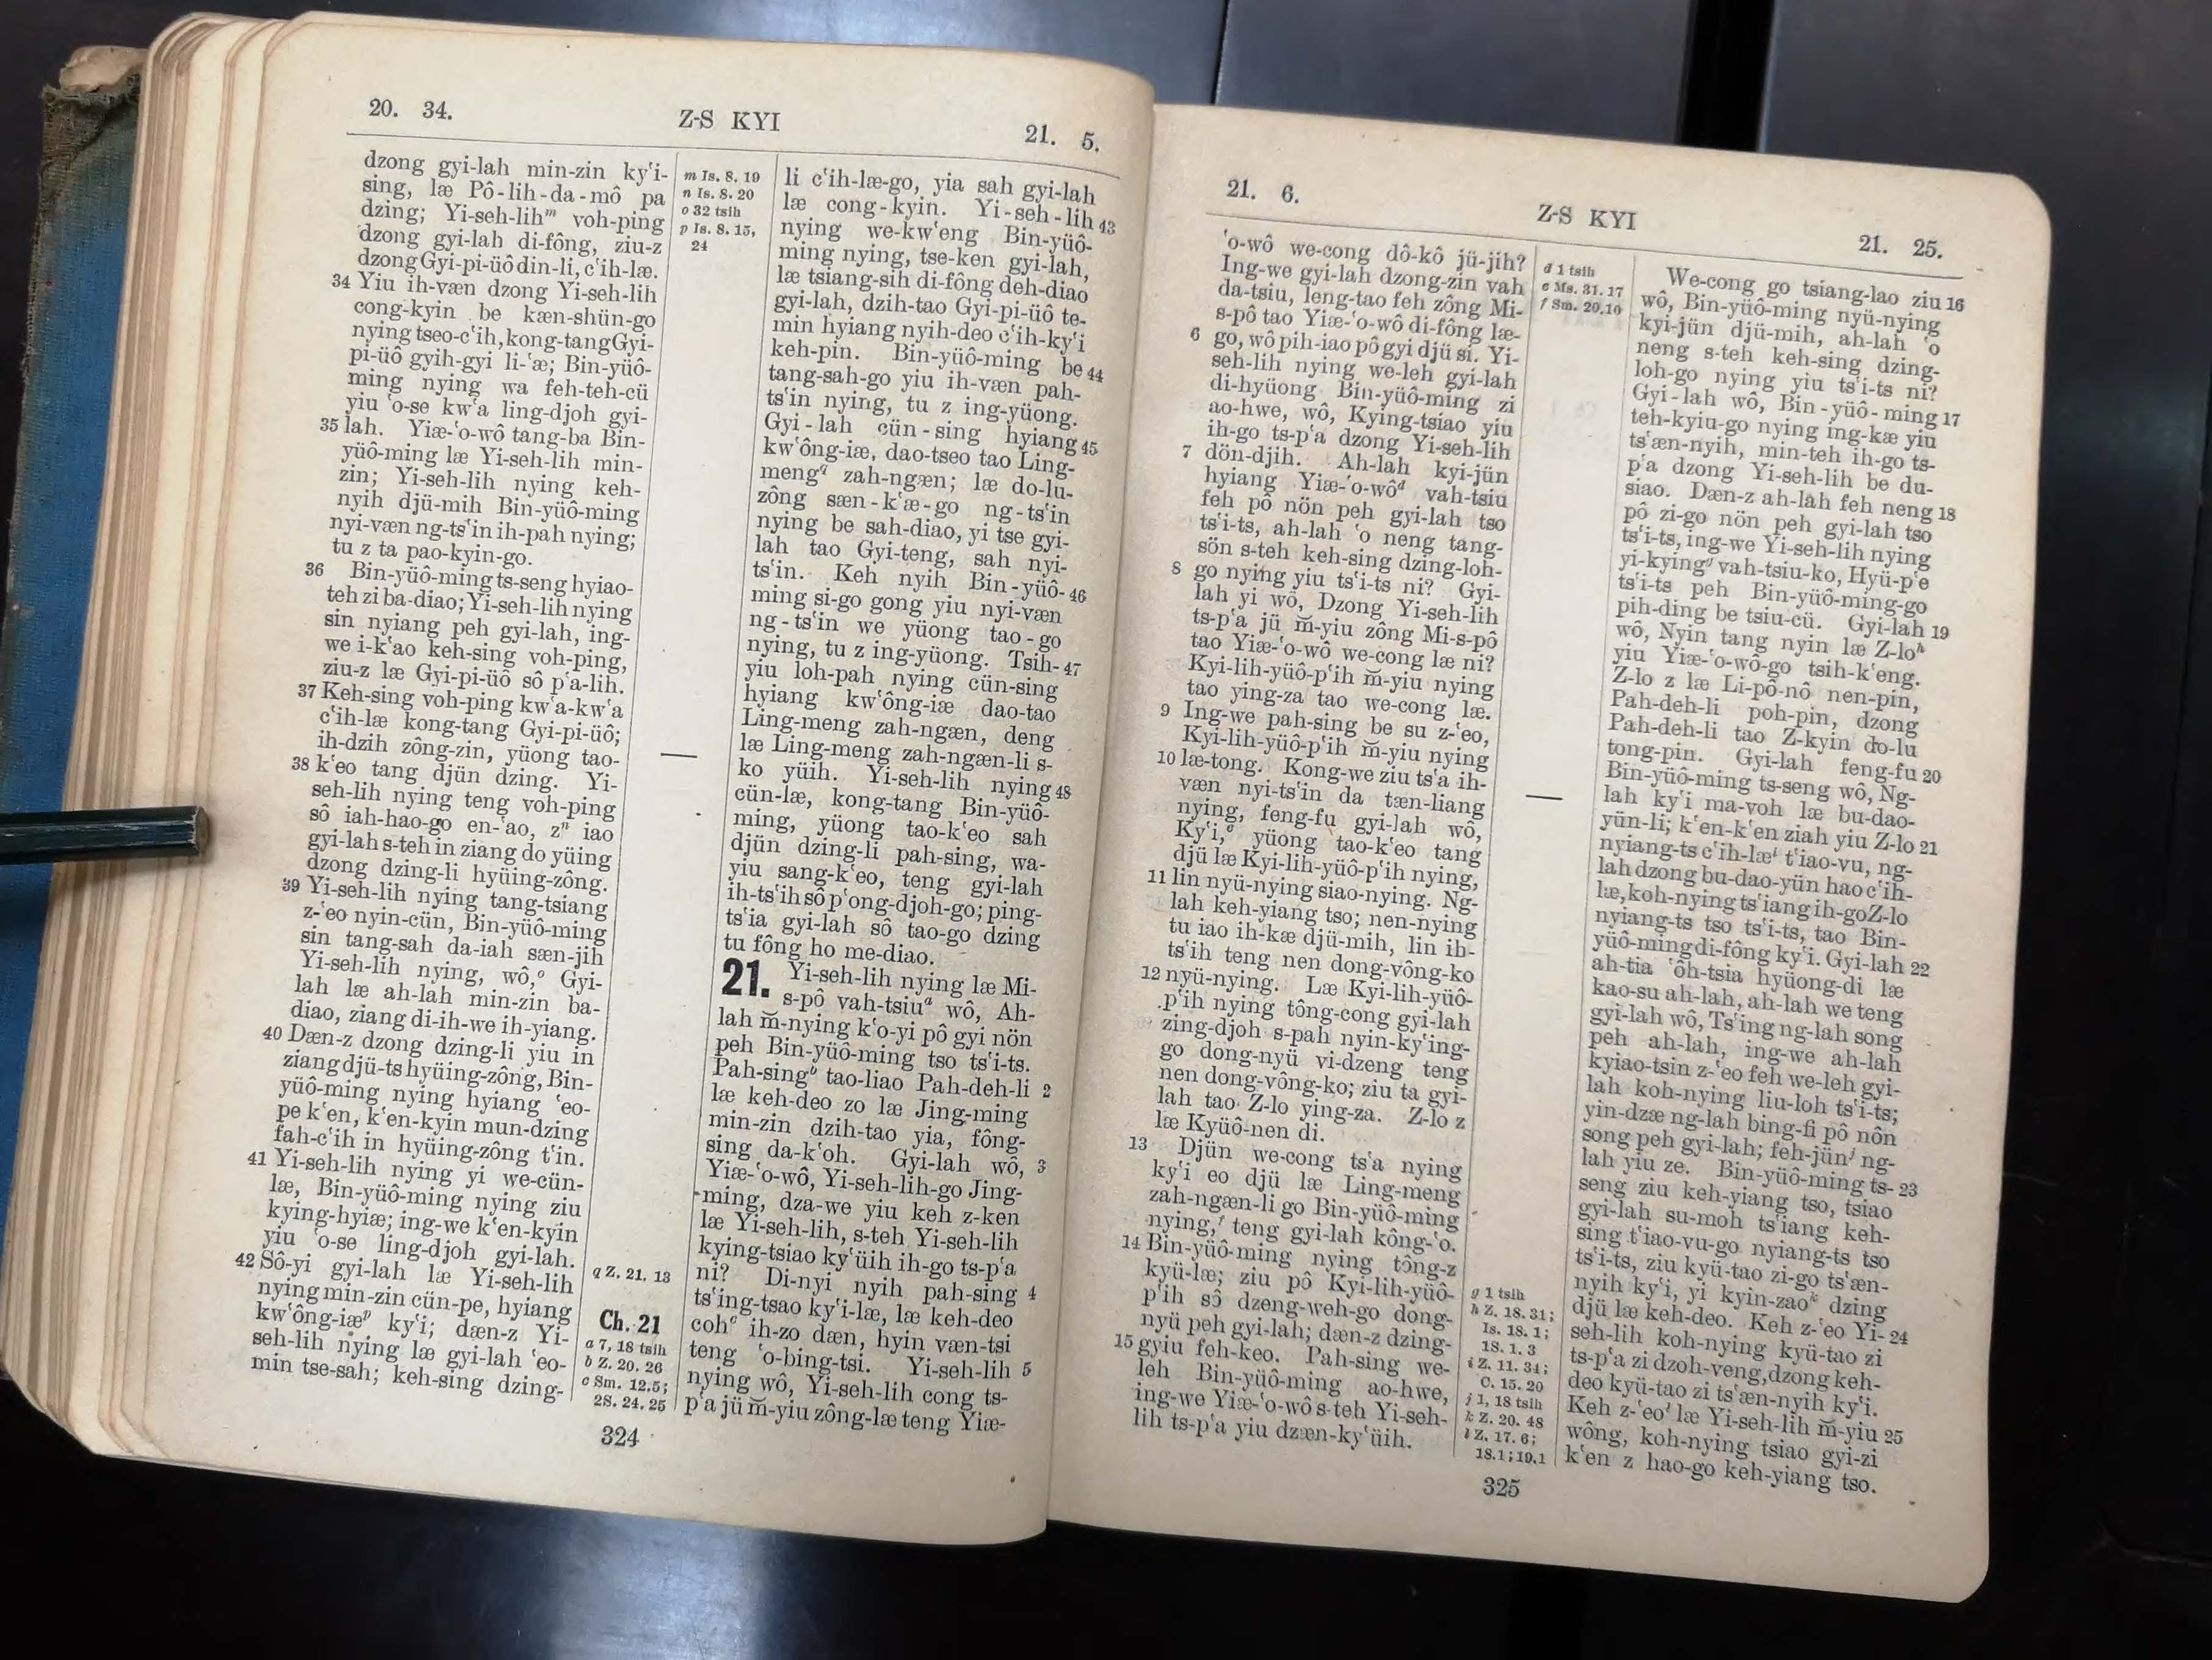 20. 34.
Z-S KYI
21. 5.
dzong gyi-lah min-zin kyʻi-
sing, læ Pô-lih-da-mô pa
dzing; Yi-seh-lihᵐ voh-ping
dzong gyi-lah di-fông, ziu-z
dzong Gyi-pi-üô din-li, cʻih-læ.
34 Yiu ih-væn dzong Yi-seh-lih
cong-kyin be kæn-shün-go
nying tseo-cʻih, kong-tang Gyi-
pi-üô gyih-gyi li-ʻæ; Bin-yüô-
ming nying wa feh-teh-cü
yiu ʻo-se kwʻa ling-djoh gyi-
35 lah. Yiæ-ʻo-wô tang-ba Bin-
yüô-ming læ Yi-seh-lih min-
zin; Yi-seh-lih nying keh-
nyih djü-mih Bin-yüô-ming
nyi-væn ng-tsʻin ih-pah nying;
tu z ta pao-kyin-go.
36 Bin-yüô-ming ts-seng hyiao-
teh zi ba-diao; Yi-seh-lih nying
sin nyiang peh gyi-lah, ing-
we i-kʻao keh-sing voh-ping,
ziu-z læ Gyi-pi-üô sô pʻa-lih.
37 Keh-sing voh-ping kwʻa-kwʻa
cʻih-læ kong-tang Gyi-pi-üô;
ih-dzih zông-zin, yüong tao-
38 kʻeo tang djün dzing. Yi-
seh-lih nying teng voh-ping
sô iah-hao-go en-ʻao, zⁿ iao
gyi-lah s-teh in ziang do yüing
dzong dzing-li hyüing-zông.
39 Yi-seh-lih nying tang-tsiang
z-ʻeo nyin-cün, Bin-yüô-ming
sin tang-sah da-iah sæn-jih
Yi-seh-lih nying, wô,ᵒ Gyi-
lah læ ah-lah min-zin ba-
diao, ziang di-ih-we ih-yiang.
40 Dæn-z dzong dzing-li yiu in
ziang djü-ts hyüing-zông, Bin-
yüô-ming nying hyiang ʻeo-
pe kʻen, kʻen-kyin mun-dzing
fah-cʻih in hyüing-zông tʻin.
41 Yi-seh-lih nying yi we-cün-
læ, Bin-yüô-ming nying ziu
kying-hyiæ; ing-we kʻen-kyin
yiu ʻo-se ling-djoh gyi-lah.
42 Sô-yi gyi-lah læ Yi-seh-lih
nying min-zin cün-pe, hyiang
kwʻông-iæᵖ kyʻi; dæn-z Yi-
seh-lih nying læ gyi-lah ʻeo-
min tse-sah; keh-sing dzing-
m Is. 8. 19
n Is. 8. 20
o 32 tsih
p Is. 8. 15,
24
q Z. 21. 13
Ch. 21
a 7, 18 tsih
b Z. 20. 26
c Sm. 12.5;
2S. 24. 25
li cʻih-læ-go, yia sah gyi-lah
læ cong-kyin. Yi-seh-lih 43
nying we-kwʻeng Bin-yüô-
ming nying, tse-ken gyi-lah,
læ tsiang-sih di-fông deh-diao
gyi-lah, dzih-tao Gyi-pi-üô te-
min hyiang nyih-deo cʻih-kyʻi
keh-pin. Bin-yüô-ming be 44
tang-sah-go yiu ih-væn pah-
tsʻin nying, tu z ing-yüong.
Gyi-lah cün-sing hyiang 45
kwʻông-iæ, dao-tseo tao Ling-
meng𐞥 zah-ngæn; læ do-lu-
zông sæn-kʻæ-go ng-tsʻin
nying be sah-diao, yi tse gyi-
lah tao Gyi-teng, sah nyi-
tsʻin. Keh nyih Bin-yüô- 46
ming si-go gong yiu nyi-væn
ng-tsʻin we yüong tao-go
nying, tu z ing-yüong. Tsih- 47
yiu loh-pah nying cün-sing
hyiang kwʻông-iæ dao-tao
Ling-meng zah-ngæn, deng
læ Ling-meng zah-ngæn-li s-
ko yüih. Yi-seh-lih nying 48
cün-læ, kong-tang Bin-yüô-
ming, yüong tao-kʻeo sah
djün dzing-li pah-sing, wa-
yiu sang-kʻeo, teng gyi-lah
ih-tsʻih sô pʻong-djoh-go; ping-
tsʻia gyi-lah sô tao-go dzing
tu fông ho me-diao.
21. Yi-seh-lih nying læ Mi-
s-pô vah-tsiuᵃ wô, Ah-
lah m̆-nying kʻo-yi pô gyi nön
peh Bin-yüô-ming tso tsʻi-ts.
Pah-singᵇ tao-liao Pah-deh-li 2
læ keh-deo zo læ Jing-ming
min-zin dzih-tao yia, fông-
sing da-kʻoh. Gyi-lah wô, 3
Yiæ-ʻo-wô, Yi-seh-lih-go Jing-
ming, dza-we yiu keh z-ken
læ Yi-seh-lih, s-teh Yi-seh-lih
kying-tsiao kyʻüih ih-go ts-pʻa
ni? Di-nyi nyih pah-sing 4
tsʻing-tsao kyʻi-læ, læ keh-deo
cohᶜ ih-zo dæn, hyin væn-tsi
teng ʻo-bing-tsi. Yi-seh-lih 5
nying wô, Yi-seh-lih cong ts-
pʻa jü m̆-yiu zông-læ teng Yiæ-
324
21. 6.
Z-S KYI
21. 25.
ʻo-wô we-cong dô-kô jü-jih?
Ing-we gyi-lah dzong-zin vah
da-tsiu, leng-tao feh zông Mi-
s-pô tao Yiæ-ʻo-wô di-fông læ-
6 go, wô pih-iao pô gyi djü si. Yi-
seh-lih nying we-leh gyi-lah
di-hyüong Bin-yüô-ming zi
ao-hwe, wô, Kying-tsiao yiu
ih-go ts-pʻa dzong Yi-seh-lih
7 dön-djih. Ah-lah kyi-jün
hyiang Yiæ-ʻo-wôᵈ vah-tsiu
feh pô nön peh gyi-lah tso
tsʻi-ts, ah-lah ʻo neng tang-
sön s-teh keh-sing dzing-loh-
8 go nying yiu tsʻi-ts ni? Gyi-
lah yi wô, Dzong Yi-seh-lih
ts-pʻa jü m̆-yiu zông Mi-s-pô
tao Yiæ-ʻo-wô we-cong læ ni?
Kyi-lih-yüô-pʻih m̆-yiu nying
tao ying-za tao we-cong læ.
9 Ing-we pah-sing be su z-ʻeo,
Kyi-lih-yüô-pʻih m̆-yiu nying
10 læ-tong. Kong-we ziu tsʻa ih-
væn nyi-tsʻin da tæn-liang
nying, feng-fu gyi-lah wô,
Kyʻi,ᵉ yüong tao-kʻeo tang
djü læ Kyi-lih-yüô-pʻih nying,
11 lin nyü-nying siao-nying. Ng-
lah keh-yiang tso; nen-nying
tu iao ih-kæ djü-mih, lin ih-
tsʻih teng nen dong-vông-ko
12 nyü-nying. Læ Kyi-lih-yüô-
pʻih nying tông-cong gyi-lah
zing-djoh s-pah nyin-kyʻing-
go dong-nyü vi-dzeng teng
nen dong-vông-ko; ziu ta gyi-
lah tao Z-lo ying-za. Z-lo z
læ Kyüô-nen di.
13 Djün we-cong tsʻa nying
kyʻi eo djü læ Ling-meng
zah-ngæn-li go Bin-yüô-ming
nying,ᶠ teng gyi-lah kông-ʻo.
14 Bin-yüô-ming nying tông-z
kyü-læ; ziu pô Kyi-lih-yüô-
pʻih sô dzeng-weh-go dong-
nyü peh gyi-lah; dæn-z dzing-
15 gyiu feh-keo. Pah-sing we-
leh Bin-yüô-ming ao-hwe,
ing-we Yiæ-ʻo-wô s-teh Yi-seh-
lih ts-pʻa yiu dzæn-kyʻüih.
d 1 tsih
e Ms. 31. 17
f Sm. 20.10
g 1 tsih
h Z. 18. 31;
Is. 18. 1;
1S. 1. 3
i Z. 11. 34;
C. 15. 20
j 1, 18 tsih
k Z. 20. 48
l Z. 17. 6;
18.1; 19.1
We-cong go tsiang-lao ziu 16
wô, Bin-yüô-ming nyü-nying
kyi-jün djü-mih, ah-lah ʻo
neng s-teh keh-sing dzing-
loh-go nying yiu tsʻi-ts ni?
Gyi-lah wô, Bin-yüô-ming 17
teh-kyiu-go nying ing-kæ yiu
tsʻæn-nyih, min-teh ih-go ts-
pʻa dzong Yi-seh-lih be du-
siao. Dæn-z ah-lah feh neng 18
pô zi-go nön peh gyi-lah tso
tsʻi-ts, ing-we Yi-seh-lih nying
yi-kyingᵍ vah-tsiu-ko, Hyü-pʻe
tsʻi-ts peh Bin-yüô-ming-go
pih-ding be tsiu-cü. Gyi-lah 19
wô, Nyin tang nyin læ Z-loʰ
yiu Yiæ-ʻo-wô-go tsih-kʻeng.
Z-lo z læ Li-pô-nô nen-pin,
Pah-deh-li poh-pin, dzong
Pah-deh-li tao Z-kyin do-lu
tong-pin. Gyi-lah feng-fu 20
Bin-yüô-ming ts-seng wô, Ng-
lah kyʻi ma-voh læ bu-dao-
yün-li; kʻen-kʻen ziah yiu Z-lo 21
nyiang-ts cʻih-læⁱ tʻiao-vu, ng-
lah dzong bu-dao-yün hao cʻih-
læ, koh-nying tsʻiang ih-go Z-lo
nyiang-ts tso tsʻi-ts, tao Bin-
yüô-ming di-fông kyʻi. Gyi-lah 22
ah-tia ʻôh-tsia hyüong-di læ
kao-su ah-lah, ah-lah we teng
gyi-lah wô, Tsʻing ng-lah song
peh ah-lah, ing-we ah-lah
kyiao-tsin z-ʻeo feh we-leh gyi-
lah koh-nying liu-loh tsʻi-ts;
yin-dzæ ng-lah bing-fi pô nön
song peh gyi-lah; feh-jünʲ ng-
lah yiu ze. Bin-yüô-ming ts- 23
seng ziu keh-yiang tso, tsiao
gyi-lah su-moh tsʻiang keh-
sing tʻiao-vu-go nyiang-ts tso
tsʻi-ts, ziu kyü-tao zi-go tsʻæn-
nyih kyʻi, yi kyin-zaoᵏ dzing
djü læ keh-deo. Keh z-ʻeo Yi- 24
seh-lih koh-nying kyü-tao zi
ts-pʻa zi dzoh-veng, dzong keh-
deo kyü-tao zi tsʻæn-nyih kyʻi.
Keh z-ʻeoˡ læ Yi-seh-lih m̆-yiu 25
wông, koh-nying tsiao gyi-zi
kʻen z hao-go keh-yiang tso.
325